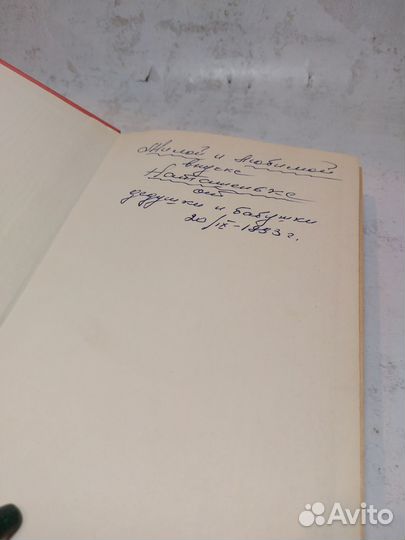 Милой и любимой
внучке
Наташеньке
от
дедушки и бабушки
20/IX-1983 г.
Avito